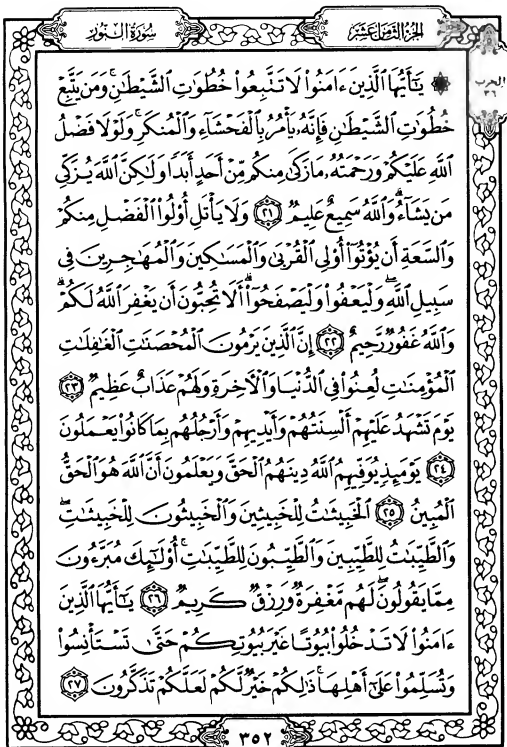 سُورَةُ النُّورِ
الجُزْءُ الثَّامِنَ عَشَرَ
الحزب ٣٦
۞ يَٰٓأَيُّهَا ٱلَّذِينَ ءَامَنُوا۟ لَا تَتَّبِعُوا۟ خُطُوَٰتِ ٱلشَّيْطَٰنِۚ وَمَن يَتَّبِعْ
خُطُوَٰتِ ٱلشَّيْطَٰنِ فَإِنَّهُۥ يَأْمُرُ بِٱلْفَحْشَآءِ وَٱلْمُنكَرِۚ وَلَوْلَا فَضْلُ
ٱللَّهِ عَلَيْكُمْ وَرَحْمَتُهُۥ مَا زَكَىٰ مِنكُم مِّنْ أَحَدٍ أَبَدًا وَلَٰكِنَّ ٱللَّهَ يُزَكِّى
مَن يَشَآءُۗ وَٱللَّهُ سَمِيعٌ عَلِيمٌ ٢١ وَلَا يَأْتَلِ أُو۟لُوا۟ ٱلْفَضْلِ مِنكُمْ
وَٱلسَّعَةِ أَن يُؤْتُوٓا۟ أُو۟لِى ٱلْقُرْبَىٰ وَٱلْمَسَٰكِينَ وَٱلْمُهَٰجِرِينَ فِى
سَبِيلِ ٱللَّهِۖ وَلْيَعْفُوا۟ وَلْيَصْفَحُوٓا۟ۗ أَلَا تُحِبُّونَ أَن يَغْفِرَ ٱللَّهُ لَكُمْۗ
وَٱللَّهُ غَفُورٌ رَّحِيمٌ ٢٢ إِنَّ ٱلَّذِينَ يَرْمُونَ ٱلْمُحْصَنَٰتِ ٱلْغَٰفِلَٰتِ
ٱلْمُؤْمِنَٰتِ لُعِنُوا۟ فِى ٱلدُّنْيَا وَٱلْءَاخِرَةِ وَلَهُمْ عَذَابٌ عَظِيمٌ ٢٣
يَوْمَ تَشْهَدُ عَلَيْهِمْ أَلْسِنَتُهُمْ وَأَيْدِيهِمْ وَأَرْجُلُهُم بِمَا كَانُوا۟ يَعْمَلُونَ
٢٤ يَوْمَئِذٍ يُوَفِّيهِمُ ٱللَّهُ دِينَهُمُ ٱلْحَقَّ وَيَعْلَمُونَ أَنَّ ٱللَّهَ هُوَ ٱلْحَقُّ
ٱلْمُبِينُ ٢٥ ٱلْخَبِيثَٰتُ لِلْخَبِيثِينَ وَٱلْخَبِيثُونَ لِلْخَبِيثَٰتِۖ
وَٱلطَّيِّبَٰتُ لِلطَّيِّبِينَ وَٱلطَّيِّبُونَ لِلطَّيِّبَٰتِۚ أُو۟لَٰٓئِكَ مُبَرَّءُونَ
مِمَّا يَقُولُونَۖ لَهُم مَّغْفِرَةٌ وَرِزْقٌ كَرِيمٌ ٢٦ يَٰٓأَيُّهَا ٱلَّذِينَ
ءَامَنُوا۟ لَا تَدْخُلُوا۟ بُيُوتًا غَيْرَ بُيُوتِكُمْ حَتَّىٰ تَسْتَأْنِسُوا۟
وَتُسَلِّمُوا۟ عَلَىٰٓ أَهْلِهَاۚ ذَٰلِكُمْ خَيْرٌ لَّكُمْ لَعَلَّكُمْ تَذَكَّرُونَ ٢٧
٣٥٢